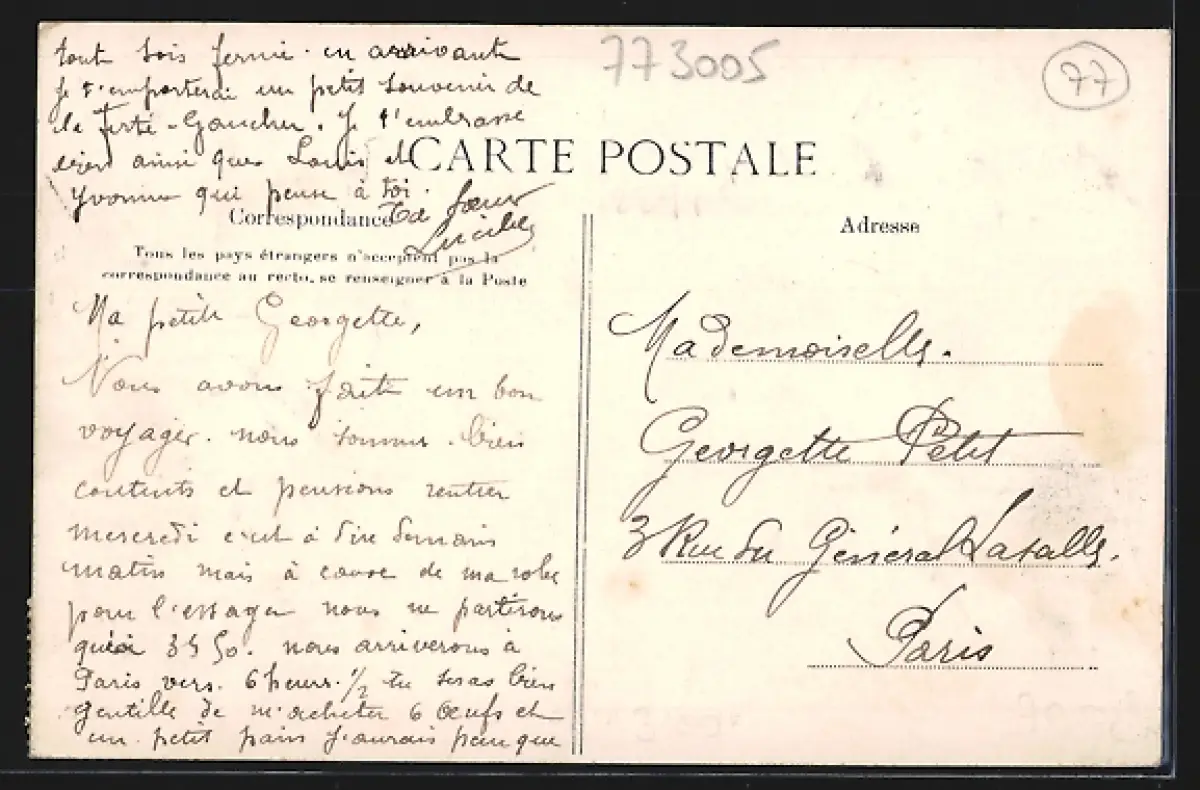 773005
77
CARTE POSTALE
Correspondance
Tous les pays étrangers n'acceptent pas la
correspondance au recto, se renseigner à la Poste
Adresse
Ma petite Georgette,
Nous avons fait un bon
voyager. nous sommes bien
contents et pensions rentrer
mercredi c'est à dire demain
matin mais à cause de ma robe
pour l'essayer nous ne partirons
qu'à 3h 50. nous arriverons à
Paris vers 6 heures 1/2 tu seras bien
gentille de m'acheter 6 œufs et
un petit pain j'aurais peur que
tout sois fermé en arrivant
je t'emporterai un petit souvenir de
la Ferté-Gaucher. Je t'embrasse
bien ainsi que Louis et
Yvonne qui pense à toi.
Ta sœur
Lucile
Mademoiselle.
Georgette Petit
3 Rue du Général Lasalle.
Paris